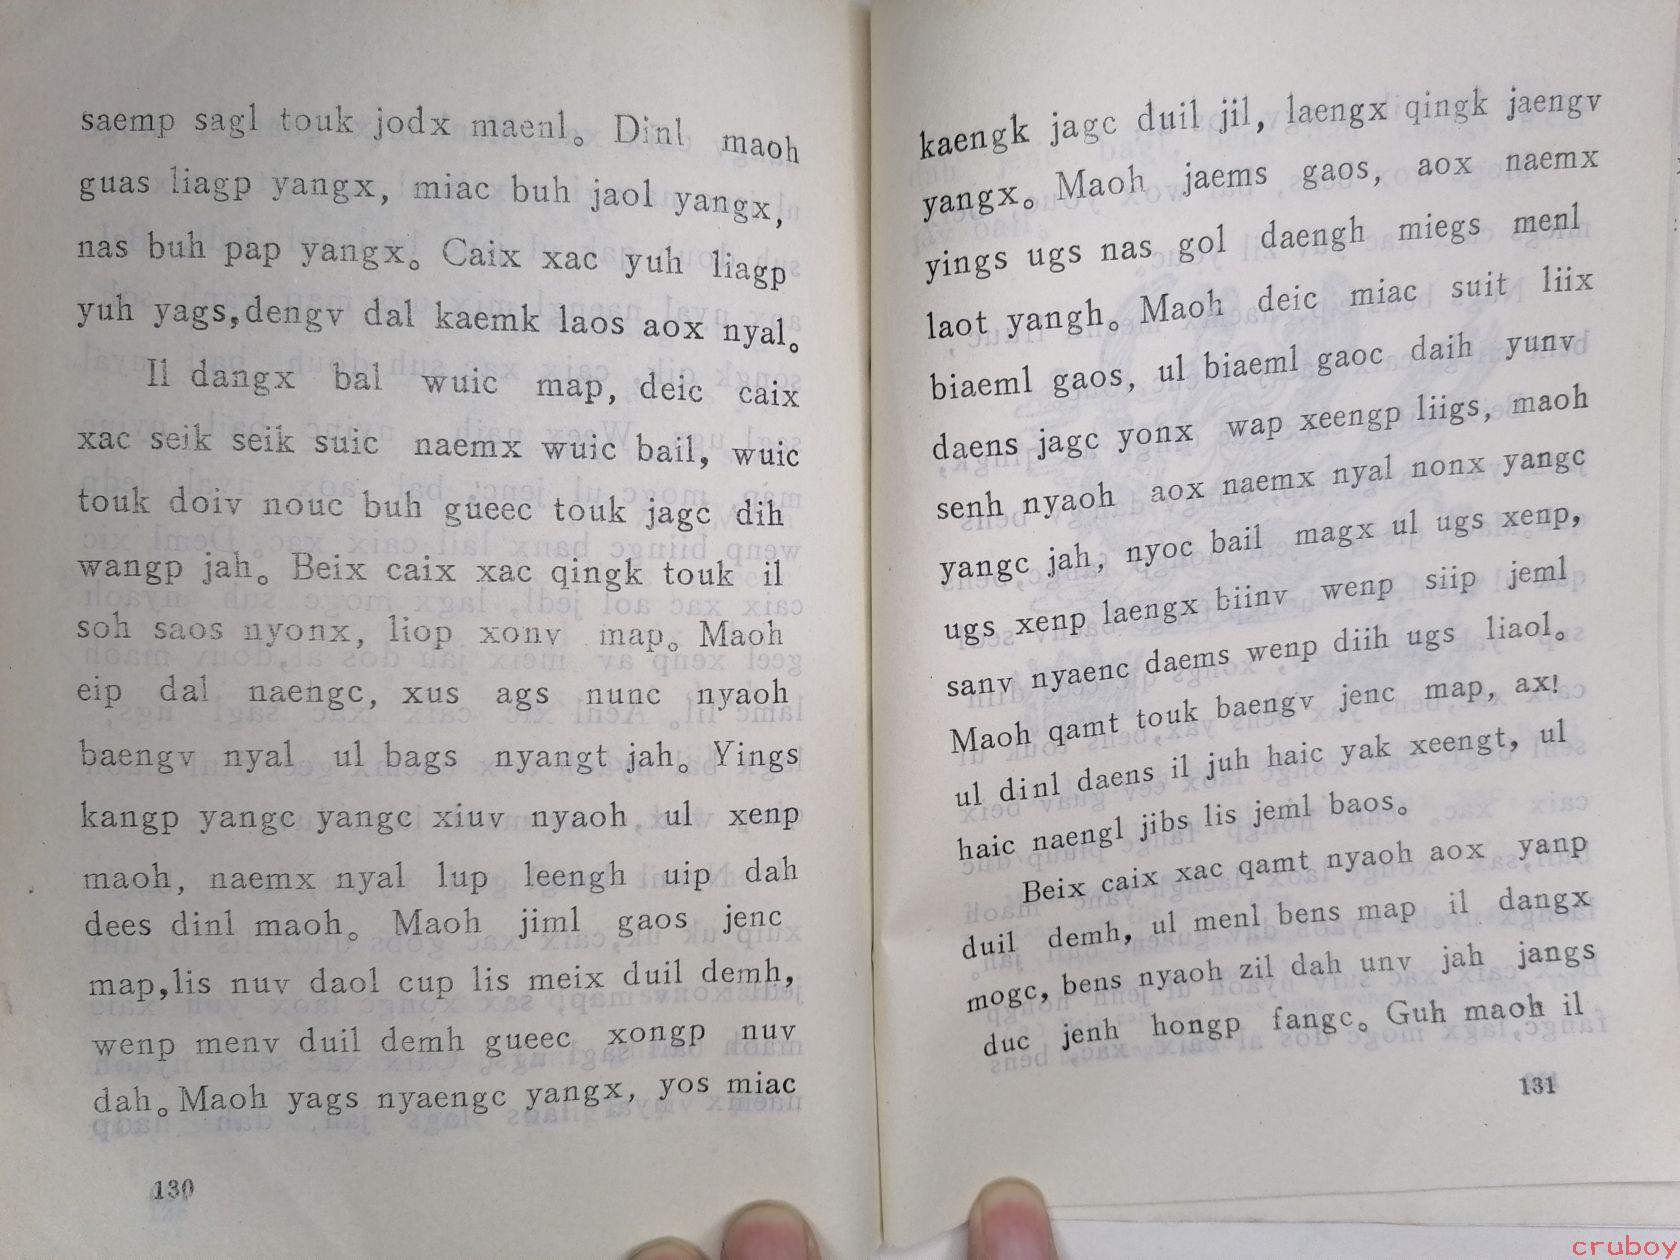 saemp sagl touk jodx maenl。 Dinl maoh
guas liagp yangx, miac buh jaol yangx,
nas buh pap yangx。 Caix xac yuh liagp
yuh yags,dengv dal kaemk laos aox nyal。
Il dangx bal wuic map, deic caix
xac seik seik suic naemx wuic bail, wuic
touk doiv nouc buh gueec touk jagc dih
wangp jah。 Beix caix xac qingk touk il
soh saos nyonx, liop xonv map。 Maoh
eip dal naengc, xus ags nunc nyaoh
baengv nyal ul bags nyangt jah。 Yings
kangp yangc yangc xiuv nyaoh ul xenp
maoh, naemx nyal lup leengh uip dah
dees dinl maoh。 Maoh jiml gaos jenc
map,lis nuv daol cup lis meix duil demh,
wenp menv duil demh gueec xongp nuv
dah。Maoh yags nyaengc yangx, yos miac
130
kaengk jagc duil jil, laengx qingk jaengv
yangx。 Maoh jaems gaos, aox naemx
yings ugs nas gol daengh miegs menl
laot yangh。 Maoh deic miac suit liix
biaeml gaos, ul biaeml gaoc daih yunv
daens jagc yonx wap xeengp liigs, maoh
senh nyaoh aox naemx nyal nonx yangc
yangc jah, nyoc bail magx ul ugs xenp,
ugs xenp laengx biinv wenp siip jeml
sanv nyaenc daems wenp diih ugs liaol。
Maoh qamt touk baengv jenc map, ax!
ul dinl daens il juh haic yak xeengt, ul
haic naengl jibs lis jeml baos。
Beix caix xac qamt nyaoh aox yanp
duil demh, ul menl bens map il dangx
mogc, bens nyaoh zil dah unv jah jangs
duc jenh hongp fangc。 Guh maoh il
131
cruboy